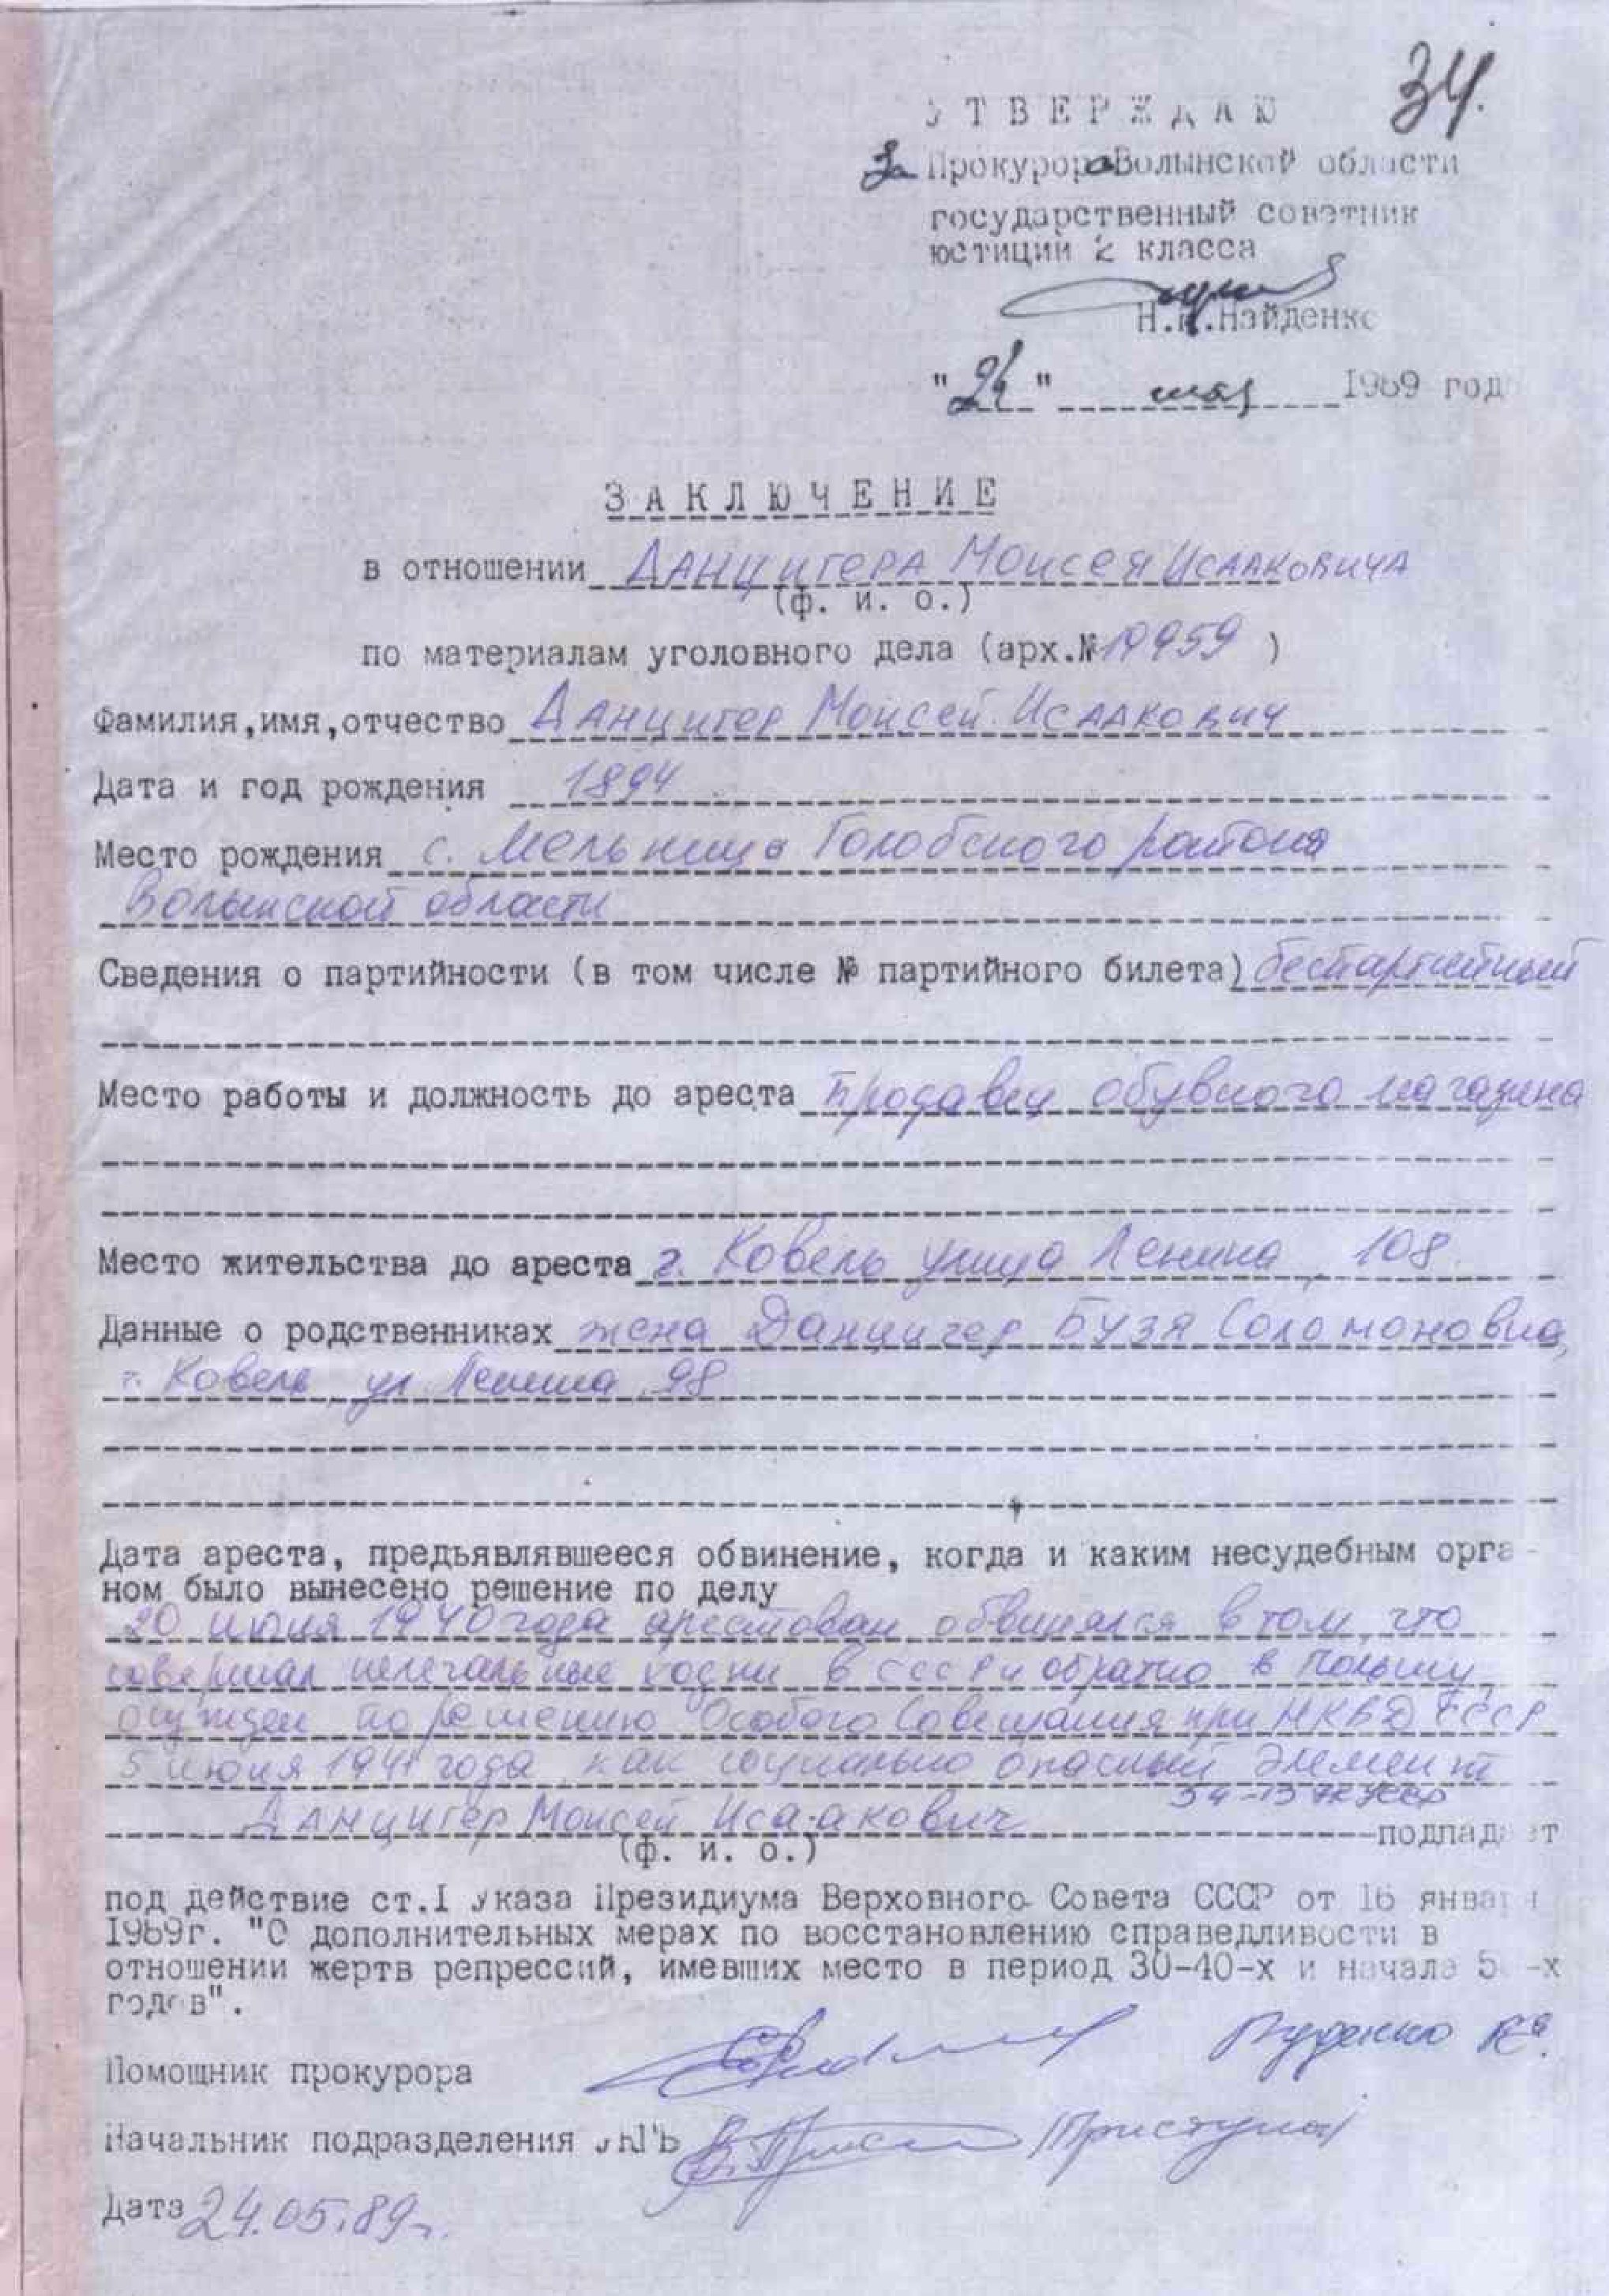 34.
УТВЕРЖДАЮ
За Прокурора Волынской области
государственный советник
юстиции 2 класса
Н. .Найденко
"24" мая 1989 год
ЗАКЛЮЧЕНИЕ
в отношении Данцигера Моисея Исааковича
(ф. и. о.)
по материалам уголовного дела (арх.№ )
Фамилия,имя,отчество Данцигер Моисей Исаакович
Дата и год рождения 1894
Место рождения с. Мельница Голобского района
Волынской области
Сведения о партийности (в том числе № партийного билета) беспартийный
Место работы и должность до ареста продавец обувного магазина
Место жительства до ареста г. Ковель улица Ленина, 108.
Данные о родственниках жена Данцигер Бузя Соломоновна,
г. Ковель, ул. Ленина, 98
Дата ареста, предьявлявшееся обвинение, когда и каким несудебным орга-
ном было вынесено решение по делу
20 июня 1940 года арестован обвинялся в том, что
совершал нелегальные ходки в СССР и обратно в Польшу,
осужден по решению Особого Совещания при НКВД СССР
5 июня 1941 года, как социально опасный элемент
54-13 УК УССР
Данцигер Моисей Исаакович подпадает
(ф. и. о.)
под действие ст.I Указа Президиума Верховного Совета СССР от 16 января
1989г. "О дополнительных мерах по восстановлению справедливости в
отношении жертв репрессий, имевших место в период 30-40-х и начале 50-х
годов".
Помощник прокурора
Начальник подразделения УКГБ (Приступа)
Дата 24.05.89г.